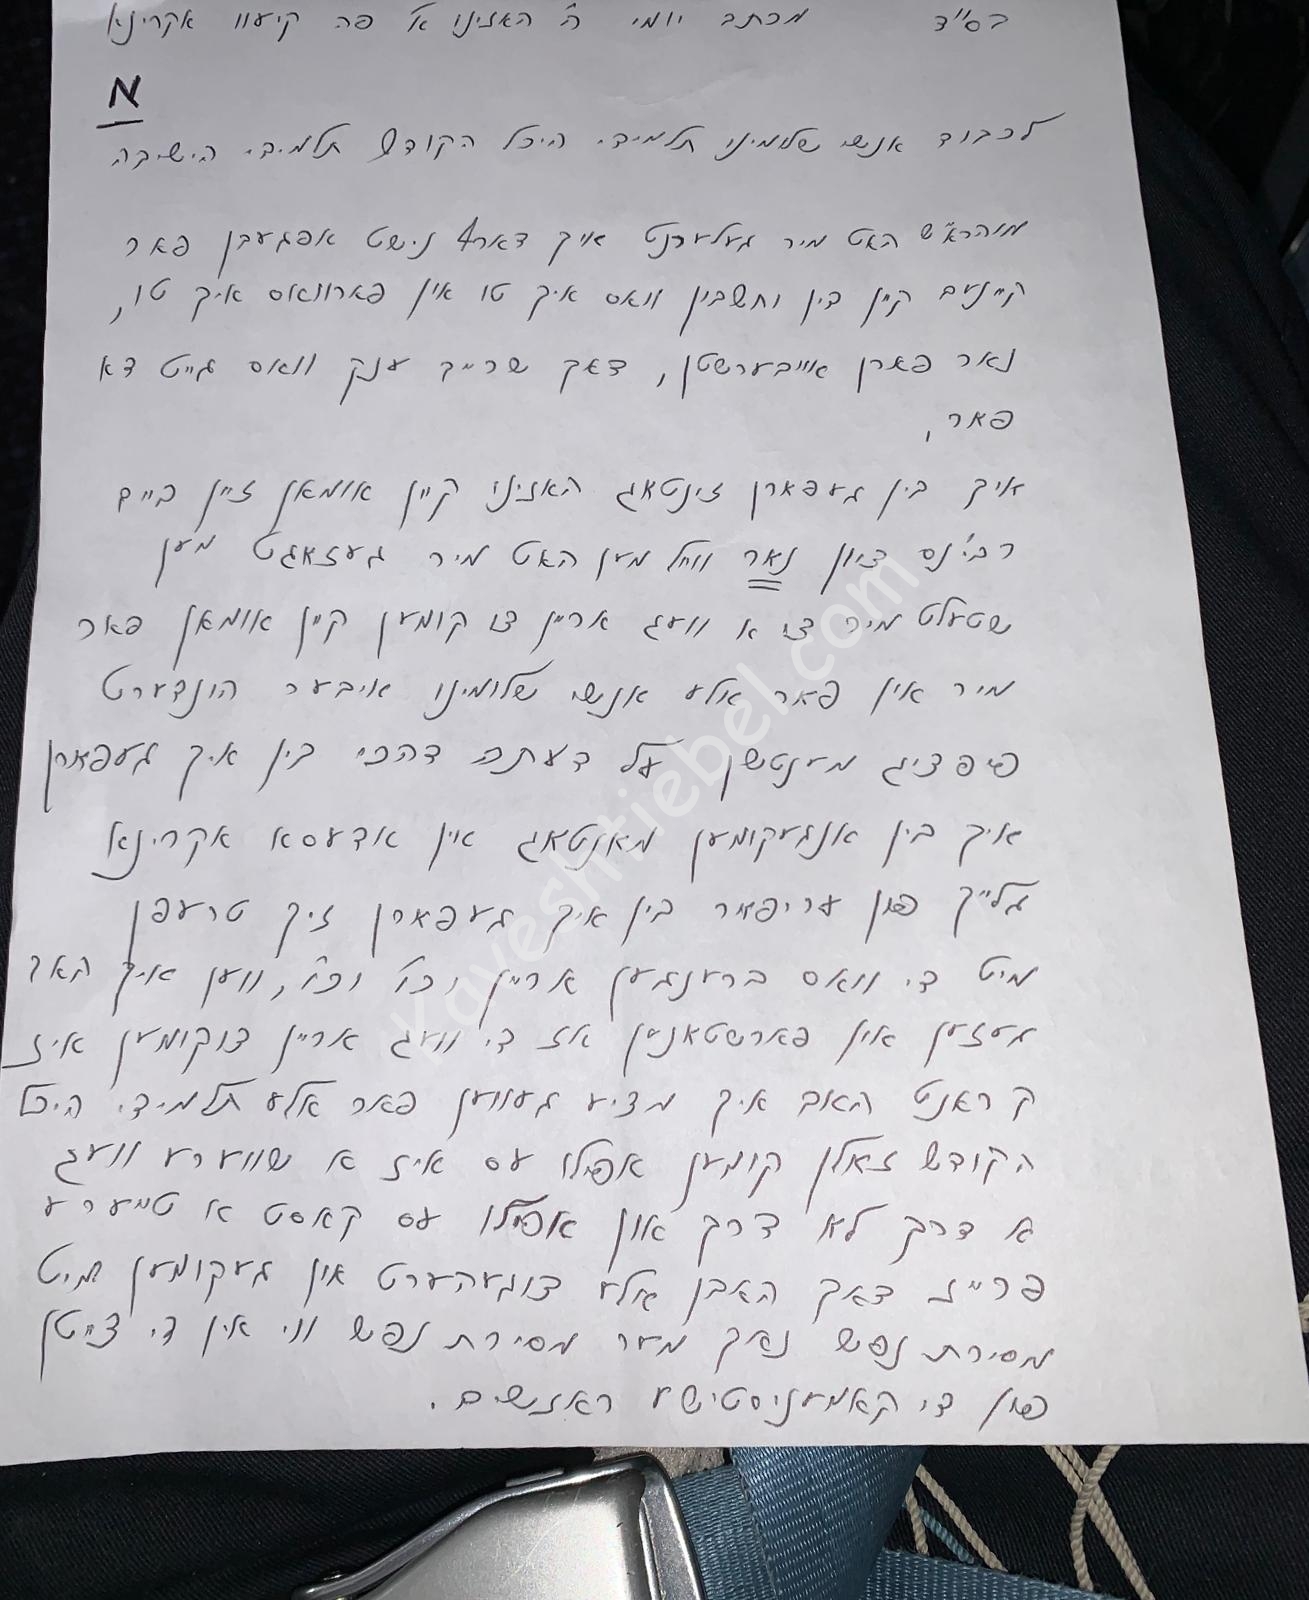 בס״ד מכתב יומי ה׳ האזינו א׳ פה קיעוו אקריינא
א
לכבוד אנשי שלומינו תלמידי היכל הקודש תלמידי הישיבה
מוהרא״ש האט מיר געלערנט איך דארף נישט אפגעבן פאר
קיינעם קיין דין וחשבון וואס איך טו אין פארוואס איך טו,
נאר פארן אויבערשטן, דאך שרייב ענק וואס גייט דא
פאר,
איך בין געפארן זינטאג האזינו קיין אומאן זיין ביים
רבי׳נס ציון נאר ווייל מען האט מיר געזאגט מען
שטעלט מיר צו א וועג אריין צו קומען קיין אומאן פאר
מיר אין פאר אלע אנשי שלומינו אויבער הונדערט
פופציג מענטשן על דעתה דהכי בין איך געפארן
איך בין אנגעקומען מאנטאג אין אדעסא אקריינא
גלייך פון ערפאר בין איך געפארן זיך טרעפן
מיט די וואס ברענגען אריין וכו׳ וכו׳, ווען איך האב
געזען אין פארשטאניין אז די וועג אריין צוקומען איז
קראנט האב איך מציע געווען פאר אלע תלמידי היכל
הקודש זאלן קומען אפילו עס איז א שווערע וועג
א דרך לא דרך און אפילו עס קאסט א טייערע
פרייז דאך האבן אלע צוגעהערט און געקומען מיט
מסירת נפש נאך מער מסירת נפש ווי אין די צייטן
פון די קאמעניסטישע ראזשים.
kaveshtiebel.com